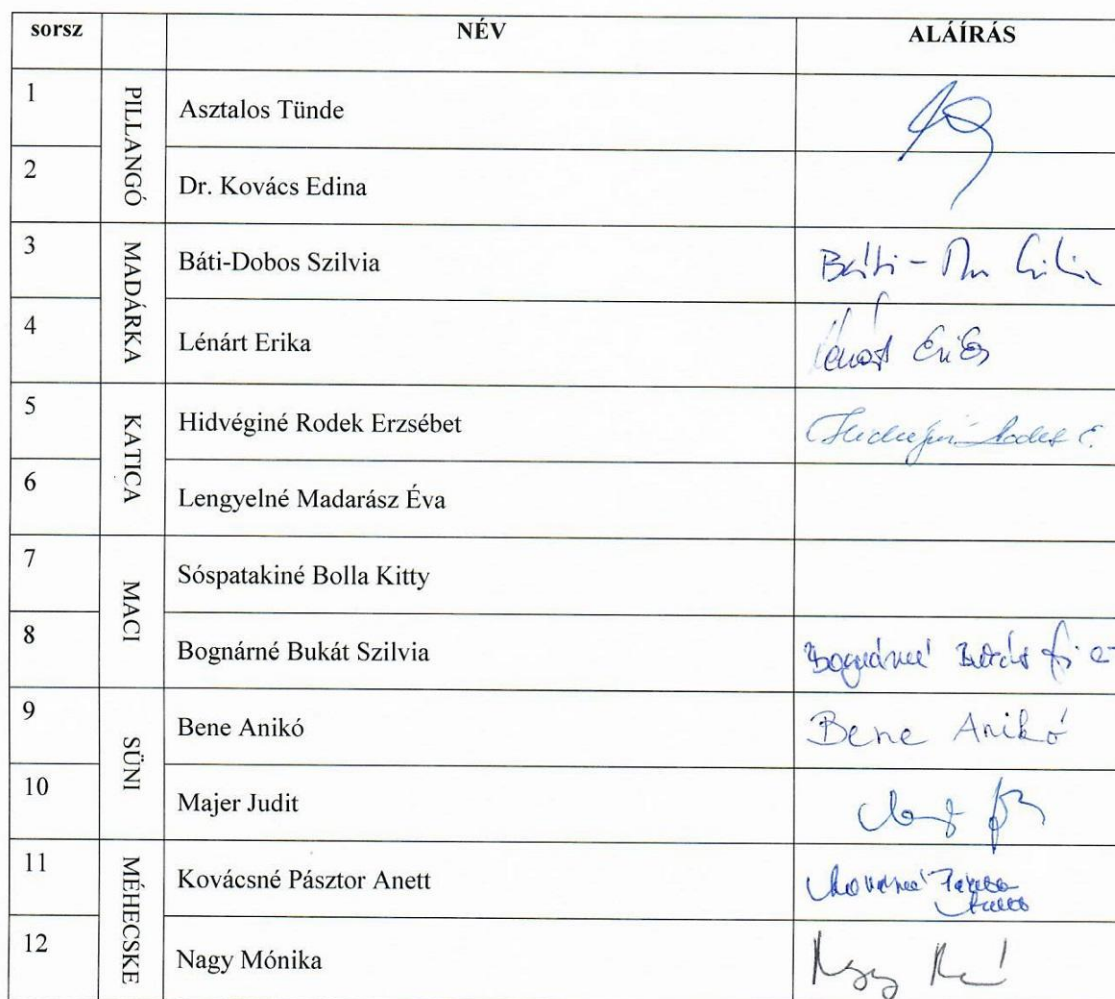 sorsz NÉV ALÁÍRÁS
PILLANGÓ
1 Asztalos Tünde
2 Dr. Kovács Edina
MADÁRKA
3 Báti-Dobos Szilvia Báti-
4 Lénárt Erika Lénárt Erika
KATICA
5 Hidvéginé Rodek Erzsébet Hidvéginé Rodek E.
6 Lengyelné Madarász Éva
MACI
7 Sóspatakiné Bolla Kitty
8 Bognárné Bukát Szilvia Bognárné Bukát
SÜNI
9 Bene Anikó Bene Anikó
10 Majer Judit
MÉHECSKE
11 Kovácsné Pásztor Anett Kovácsné Pásztor
12 Nagy Mónika Nagy